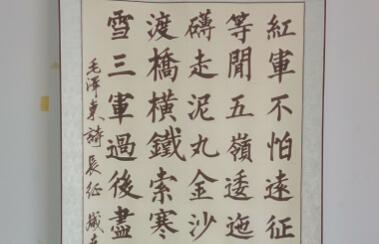 紅軍不怕遠征
等閒五嶺逶迤
礴走泥丸金沙
渡橋橫鐵索寒
雪三軍過後盡
毛澤東詩長征